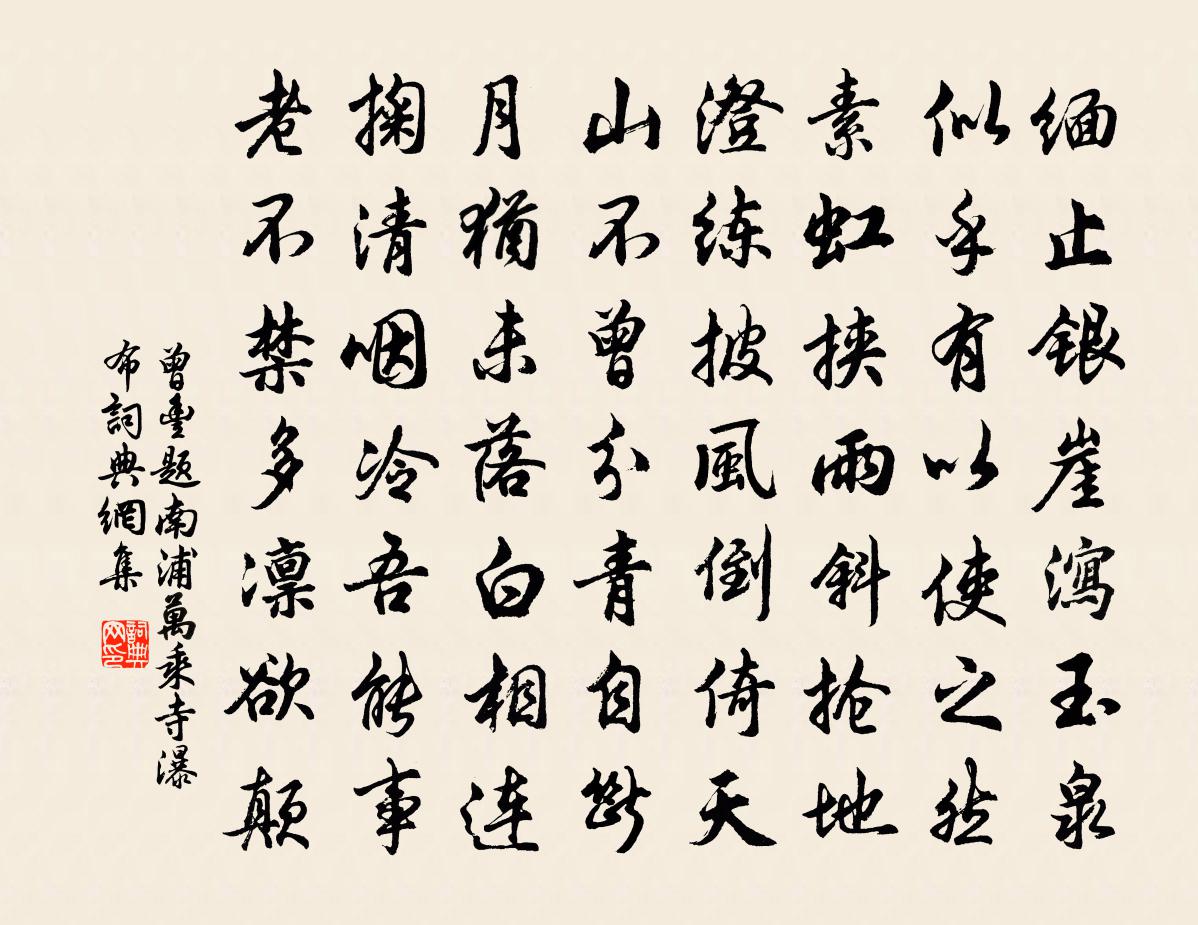 缅止银崖瀉玉泉
似乎有以使之然
素虹挟雨斜抢地
澄练披風倒倚天
山不曾分青自斷
月猶未落白相连
掬清咽冷吾能事
老不禁多凛欲颠
曾豐题南浦萬乘寺瀑
布詞典網集
詞典
网印